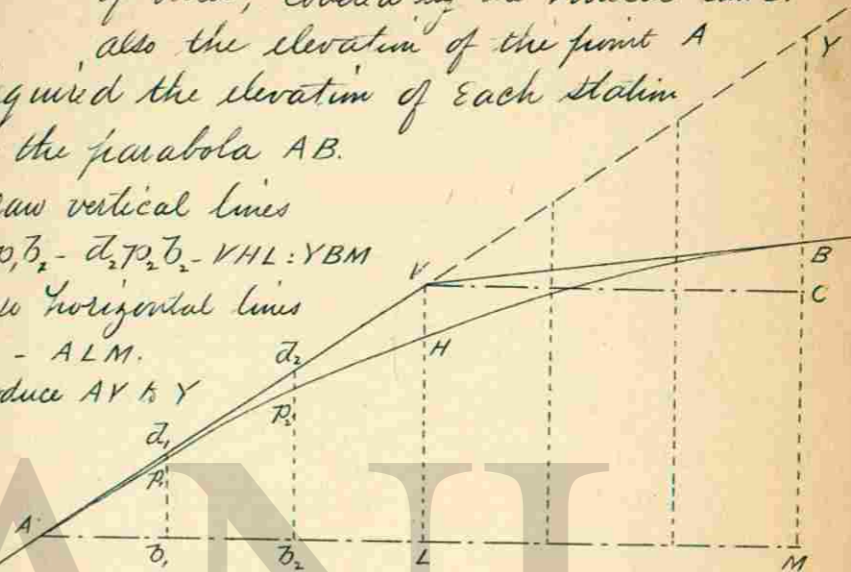 also the elevation of the point A
quired the elevation of Each station
the parabola AB.
aw vertical lines
p₁b₂ - d₂p₂b₂ - VHL : YBM
horizontal lines
- ALM.
duce AV to Y
Y
V
B
C
H
d₂
p₂
d₁
p₁
A
b₁
b₂
L
M